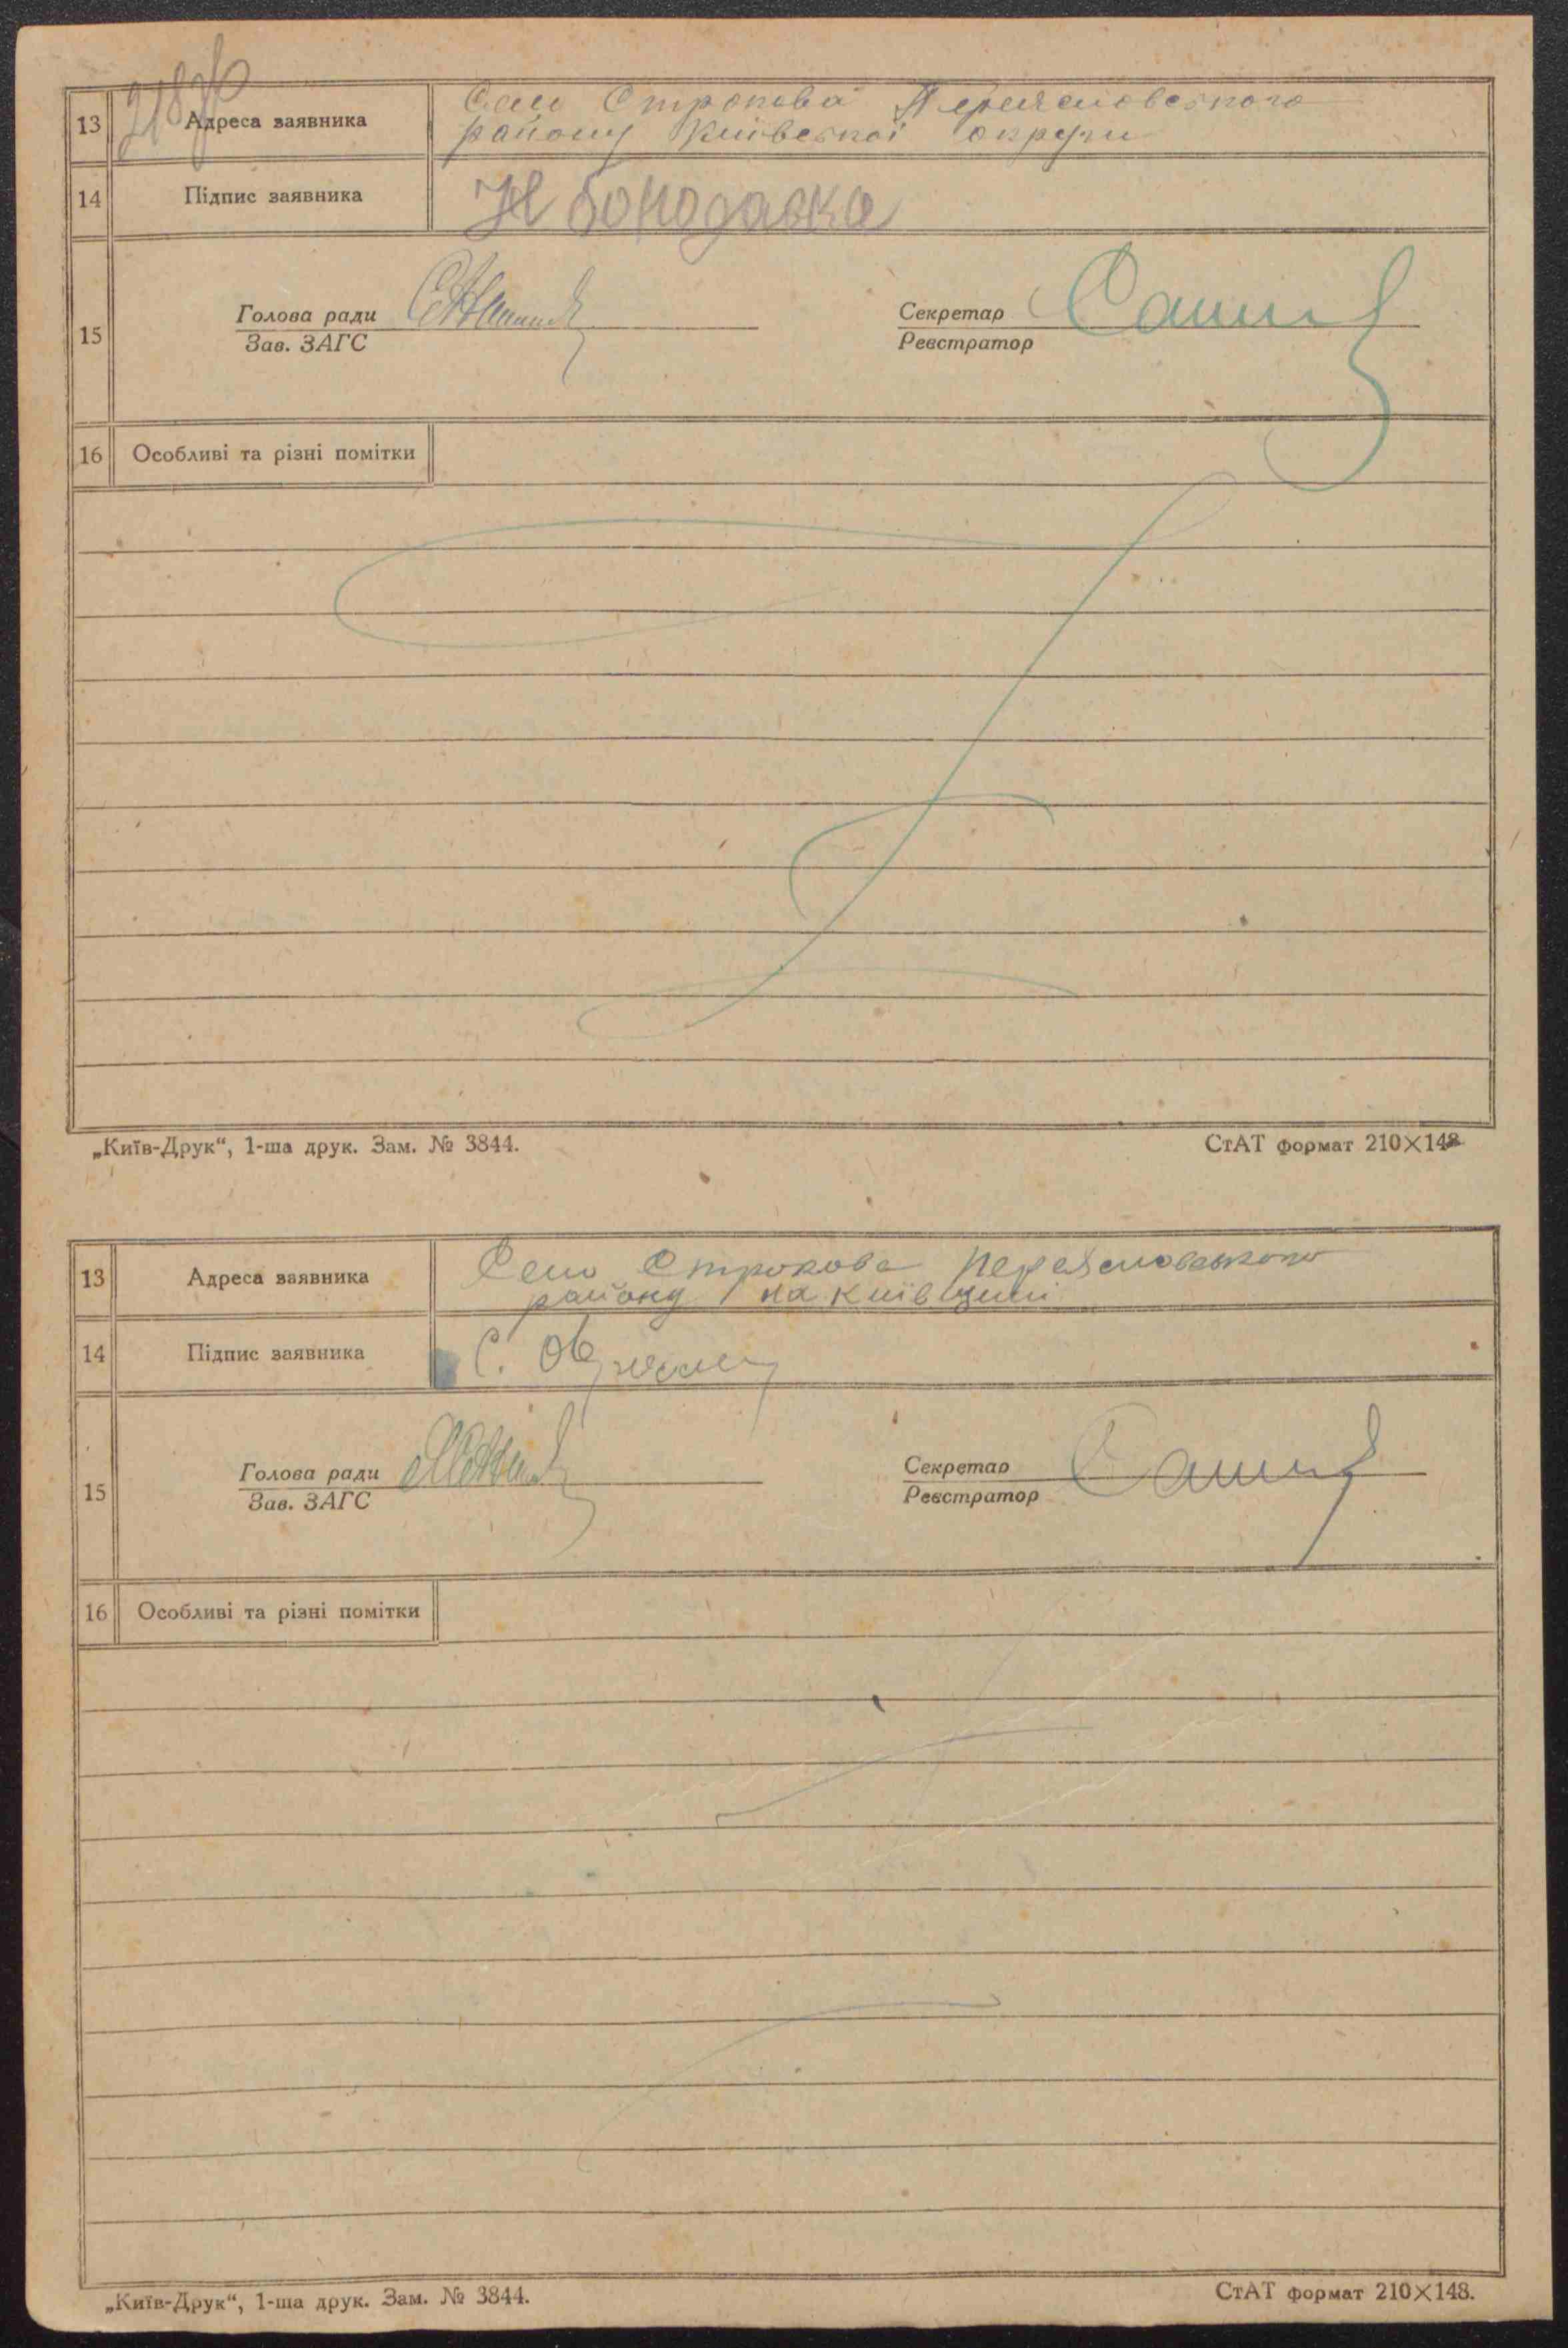 218зв
13 Адреса заявника Село Строкова Переяславського
району Київської округи
14 Підпис заявника Н Бонодавка
15 Голова ради Секретар
Зав. ЗАГС Реєстратор
16 Особливі та різні помітки
„Київ-Друк“, 1-ша друк. Зам. № 3844. СтАТ формат 210×148
13 Адреса заявника Село Строкова Переяславського
району на Київщині
14 Підпис заявника С.
15 Голова ради Секретар
Зав. ЗАГС Реєстратор
16 Особливі та різні помітки
„Київ-Друк“, 1-ша друк. Зам. № 3844. СтАТ формат 210×148.